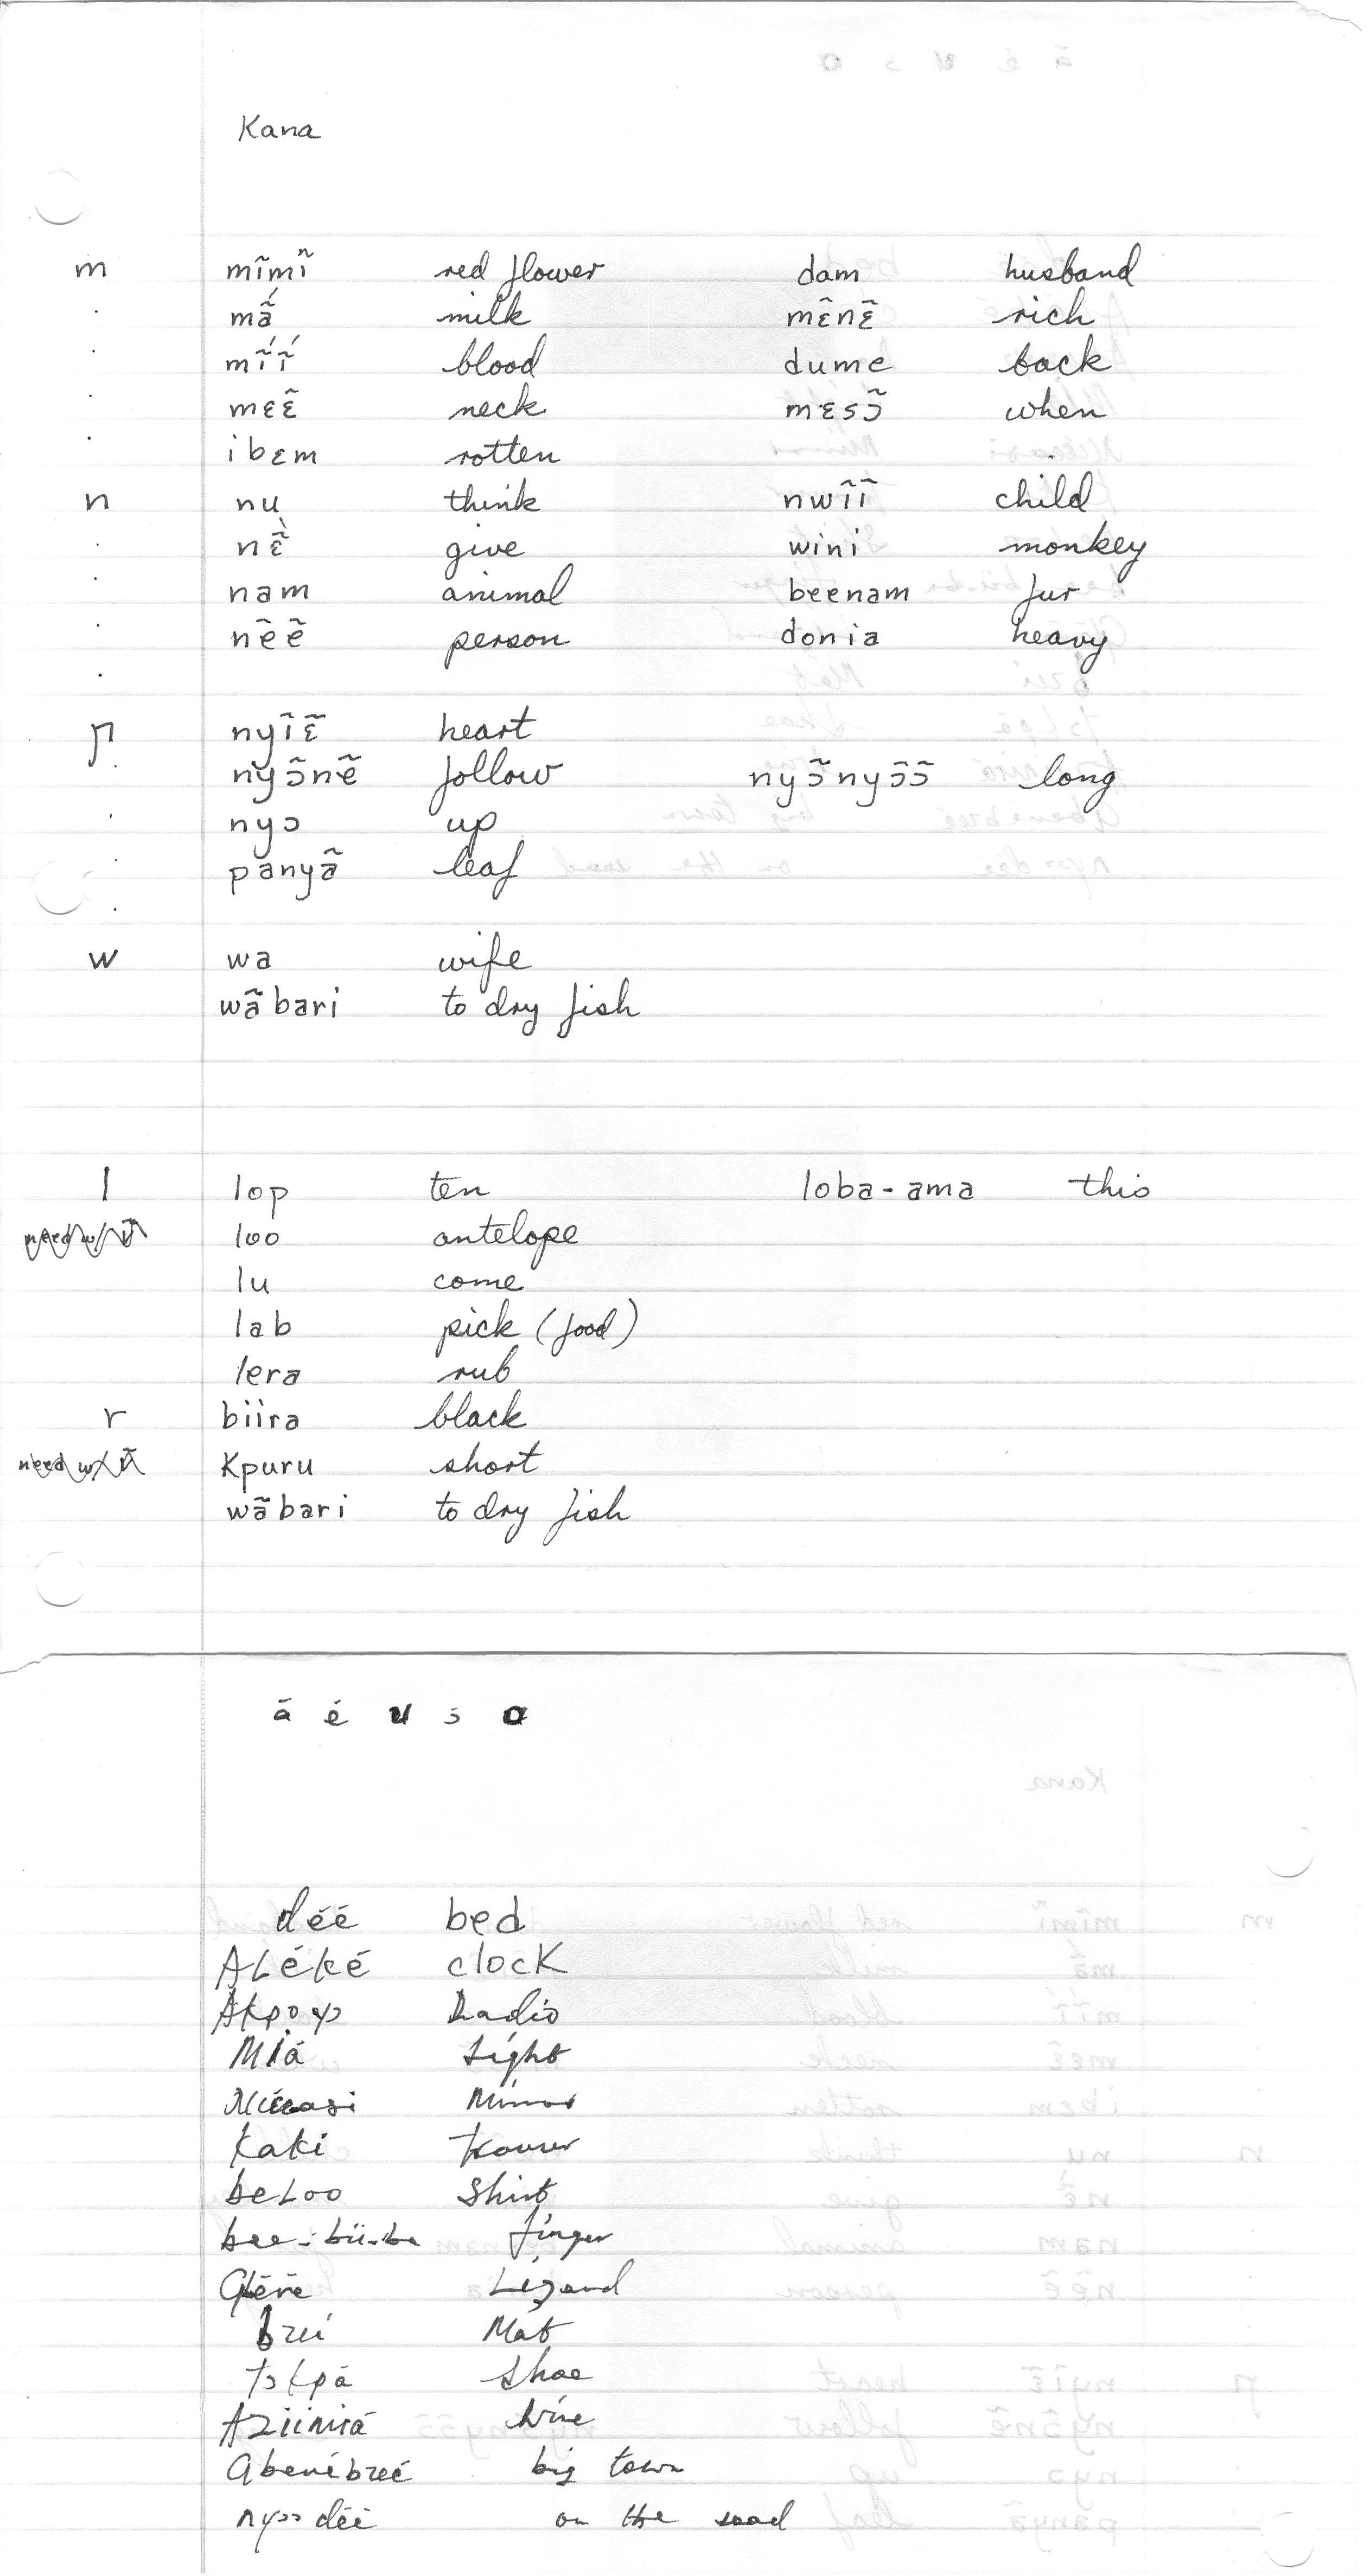 Kana
m mĩmĩ red flower dam husband
mã́ milk mɛ̃nɛ̃ rich
mĩ́ĩ́ blood dume back
mɛɛ̃ neck mɛsɔ̃ when
ibɛm rotten
n nu think nwĩĩ child
nɛ̃̀ give wini monkey
nam animal beenam fur
nẽẽ person donia heavy
ɲ nyĩɛ̃ heart
nyɔ̃nẽ follow nyɔ̃nyɔ̃ɔ̃ long
nyɔ up
panyã leaf
w wa wife
wãbari to dry fish
l lop ten loba-ama this
loo antelope
lu come
lab pick (food)
lera rub
r biira black
need w/ Ṽ kpuru short
wãbari to dry fish
ā é u ɔ o
déé bed
ALéké clock
Radio
Miā Light
Kaki Trouser
beLoo Shirt
bee-bii-ba finger
Mat
tɔkpá Shoe
Wine
big town
nyɔɔ déé on the road